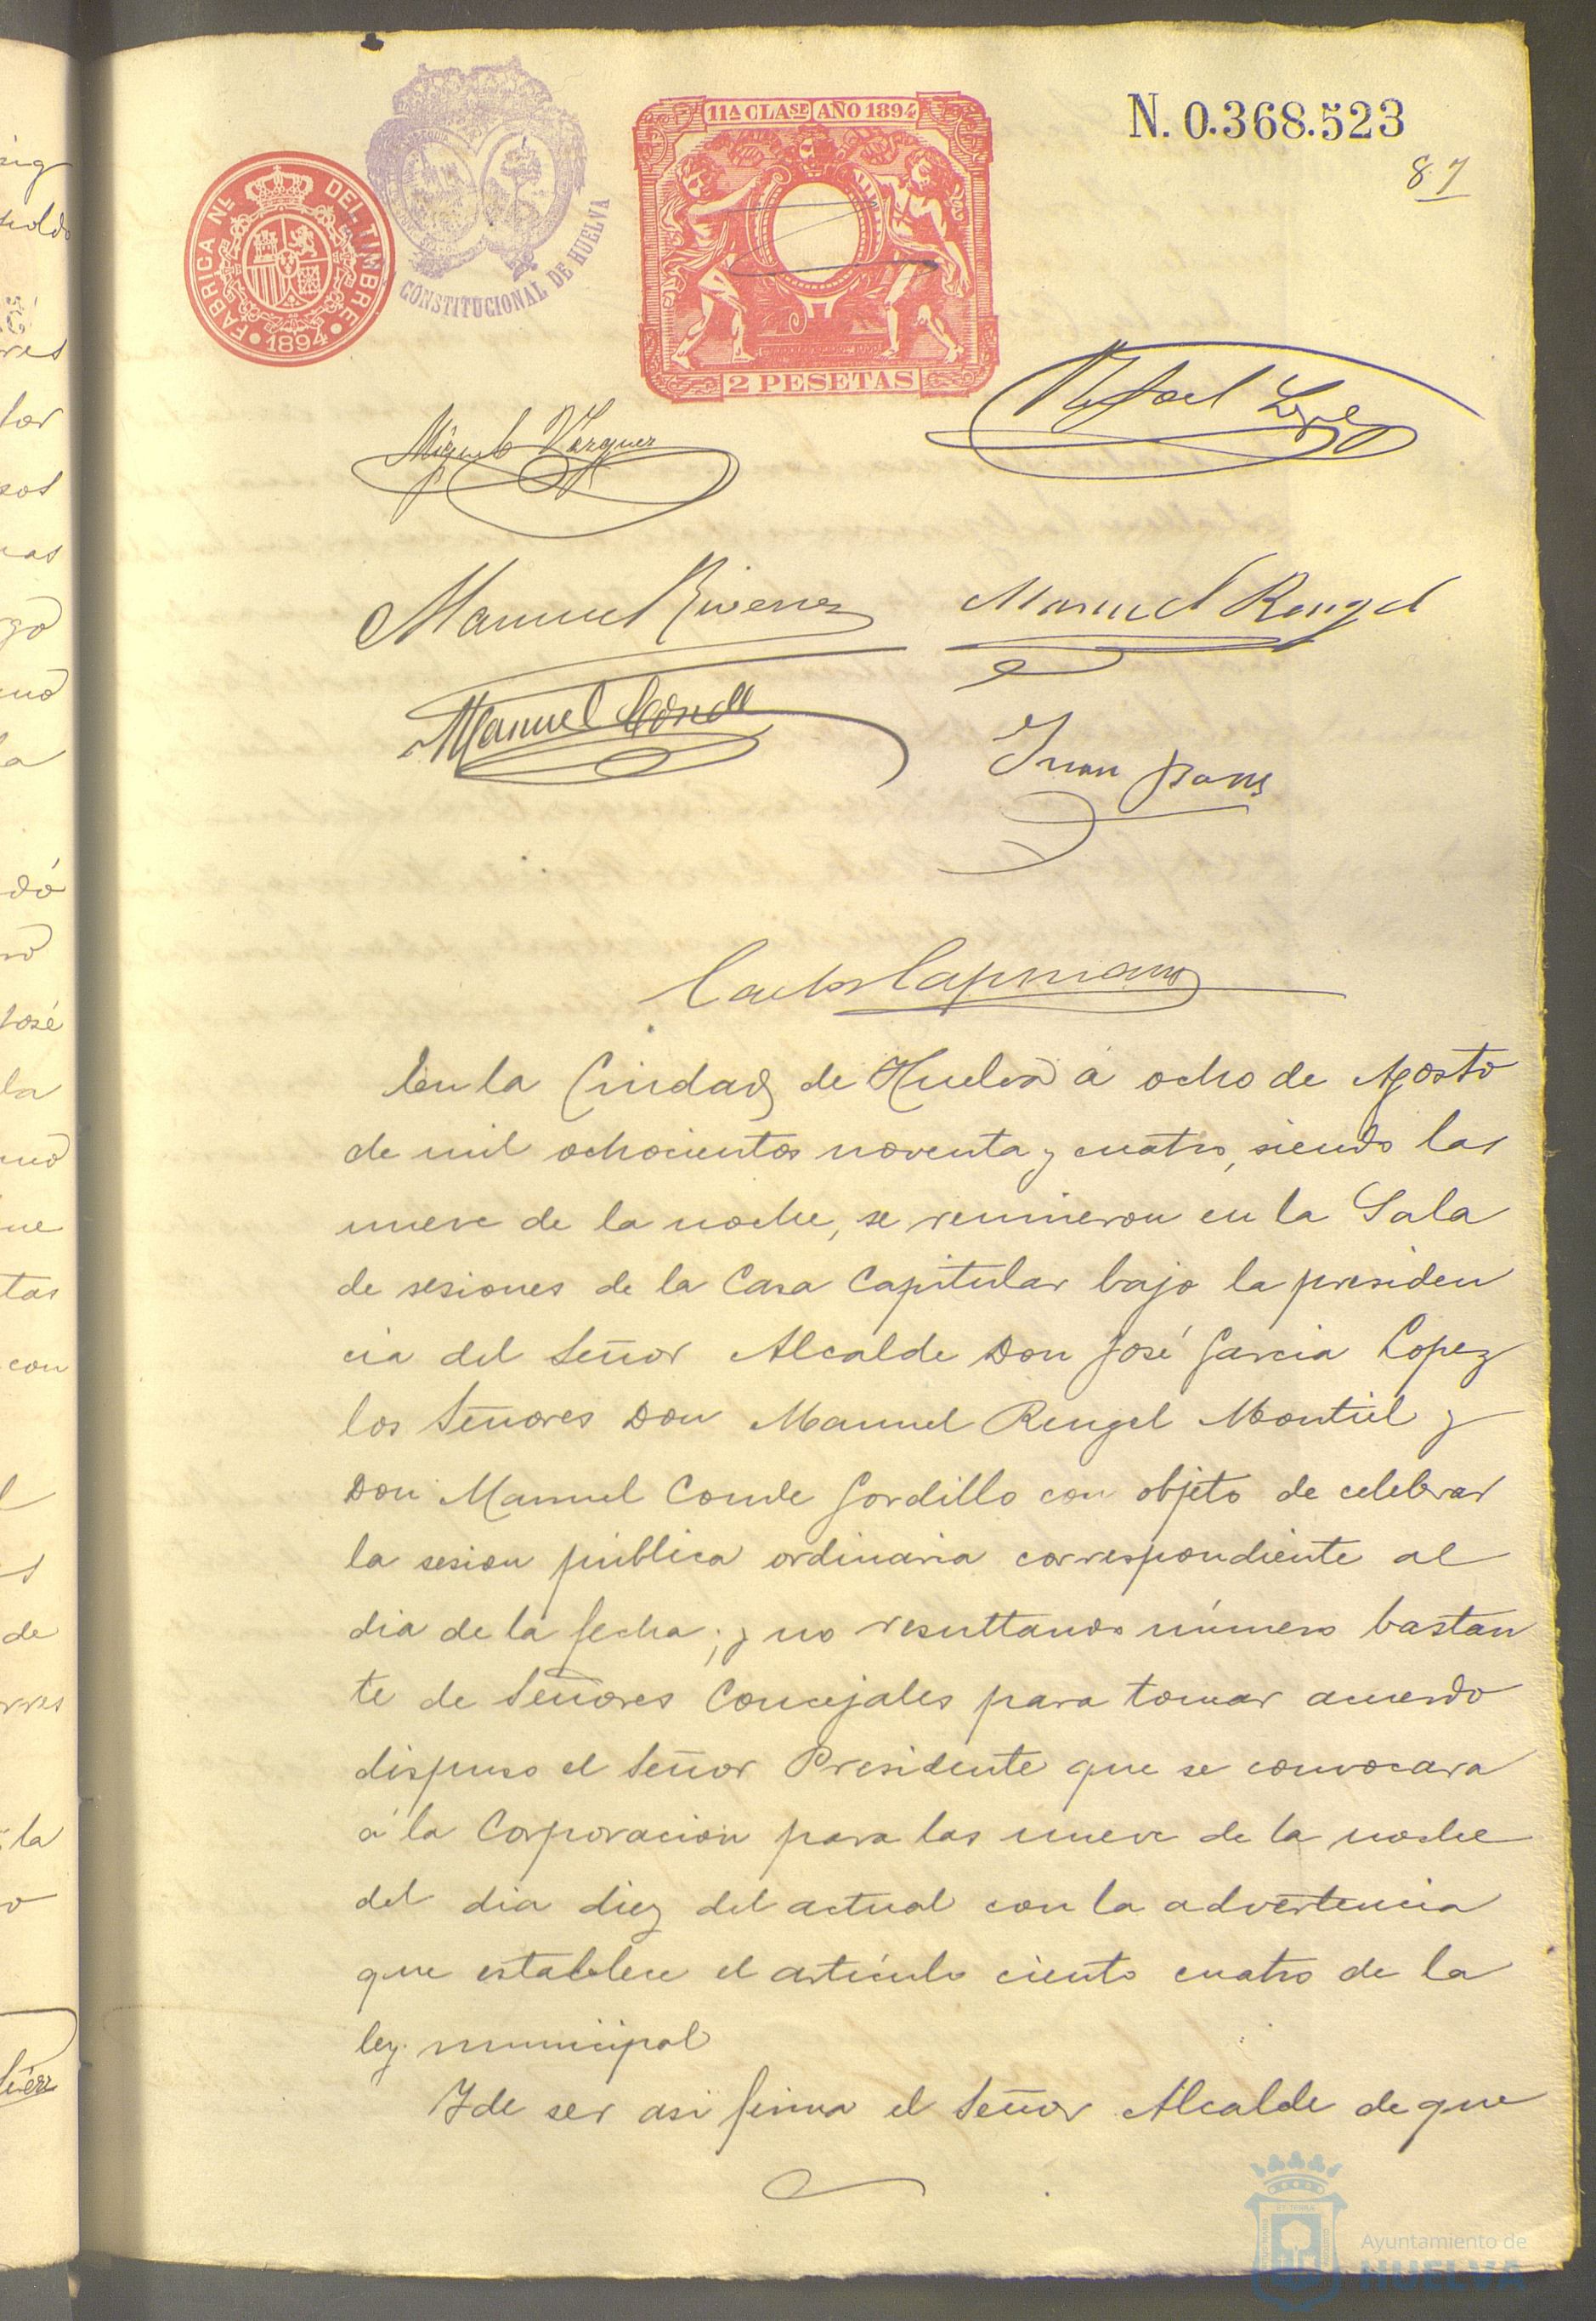 11ª CLASE AÑO 1894
N. 0.368.523
87
FABRICA NL. DEL TIMBRE
1894
CONSTITUCIONAL DE HUELVA
2 PESETAS
Rafael Lopez
Miguel Vazquez
Manuel Rengel
Manuel Conde
Juan
En la Ciudad de Huelva á ocho de Agosto
de mil ochocientos noventa y cuatro, siendo las
nueve de la noche, se reunieron en la Sala
de sesiones de la Casa Capitular bajo la presiden
cia del Señor Alcalde Don José Garcia Lopez
los Señores Don Manuel Rengel Montiel y
Don Manuel Conde Gordillo con objeto de celebrar
la sesion pública ordinaria correspondiente al
dia de la fecha; y no resultando número bastan
te de Señores Concejales para tomar acuerdo
dispuso el Señor Presidente que se convocara
á la Corporacion para las nueve de la noche
del dia diez del actual con la advertencia
que establece el artículo ciento cuatro de la
ley municipal
Y de ser asi firma el Señor Alcalde de que
Ayuntamiento de
HUELVA